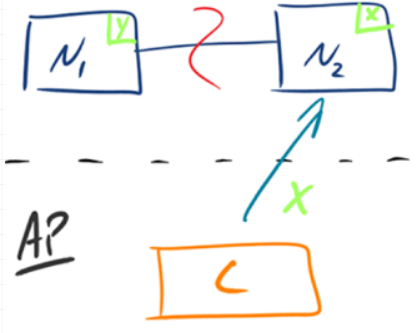 N1 y
N2 x
X
AP
C